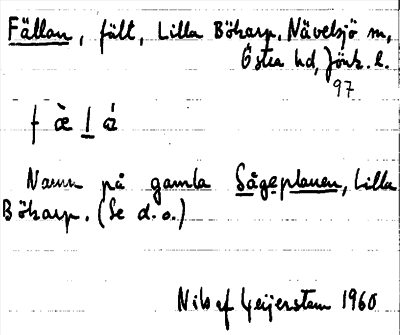 Fällan, fält, Lilla Bökarp, Nävelsjö sn,
Östra hd, Jönk. l.
97
f æ̀ l ǽ
Namn på gamla Sågeplanen, Lilla
Bökarp. (Se d. o.)
Nils af Geijerstam 1960